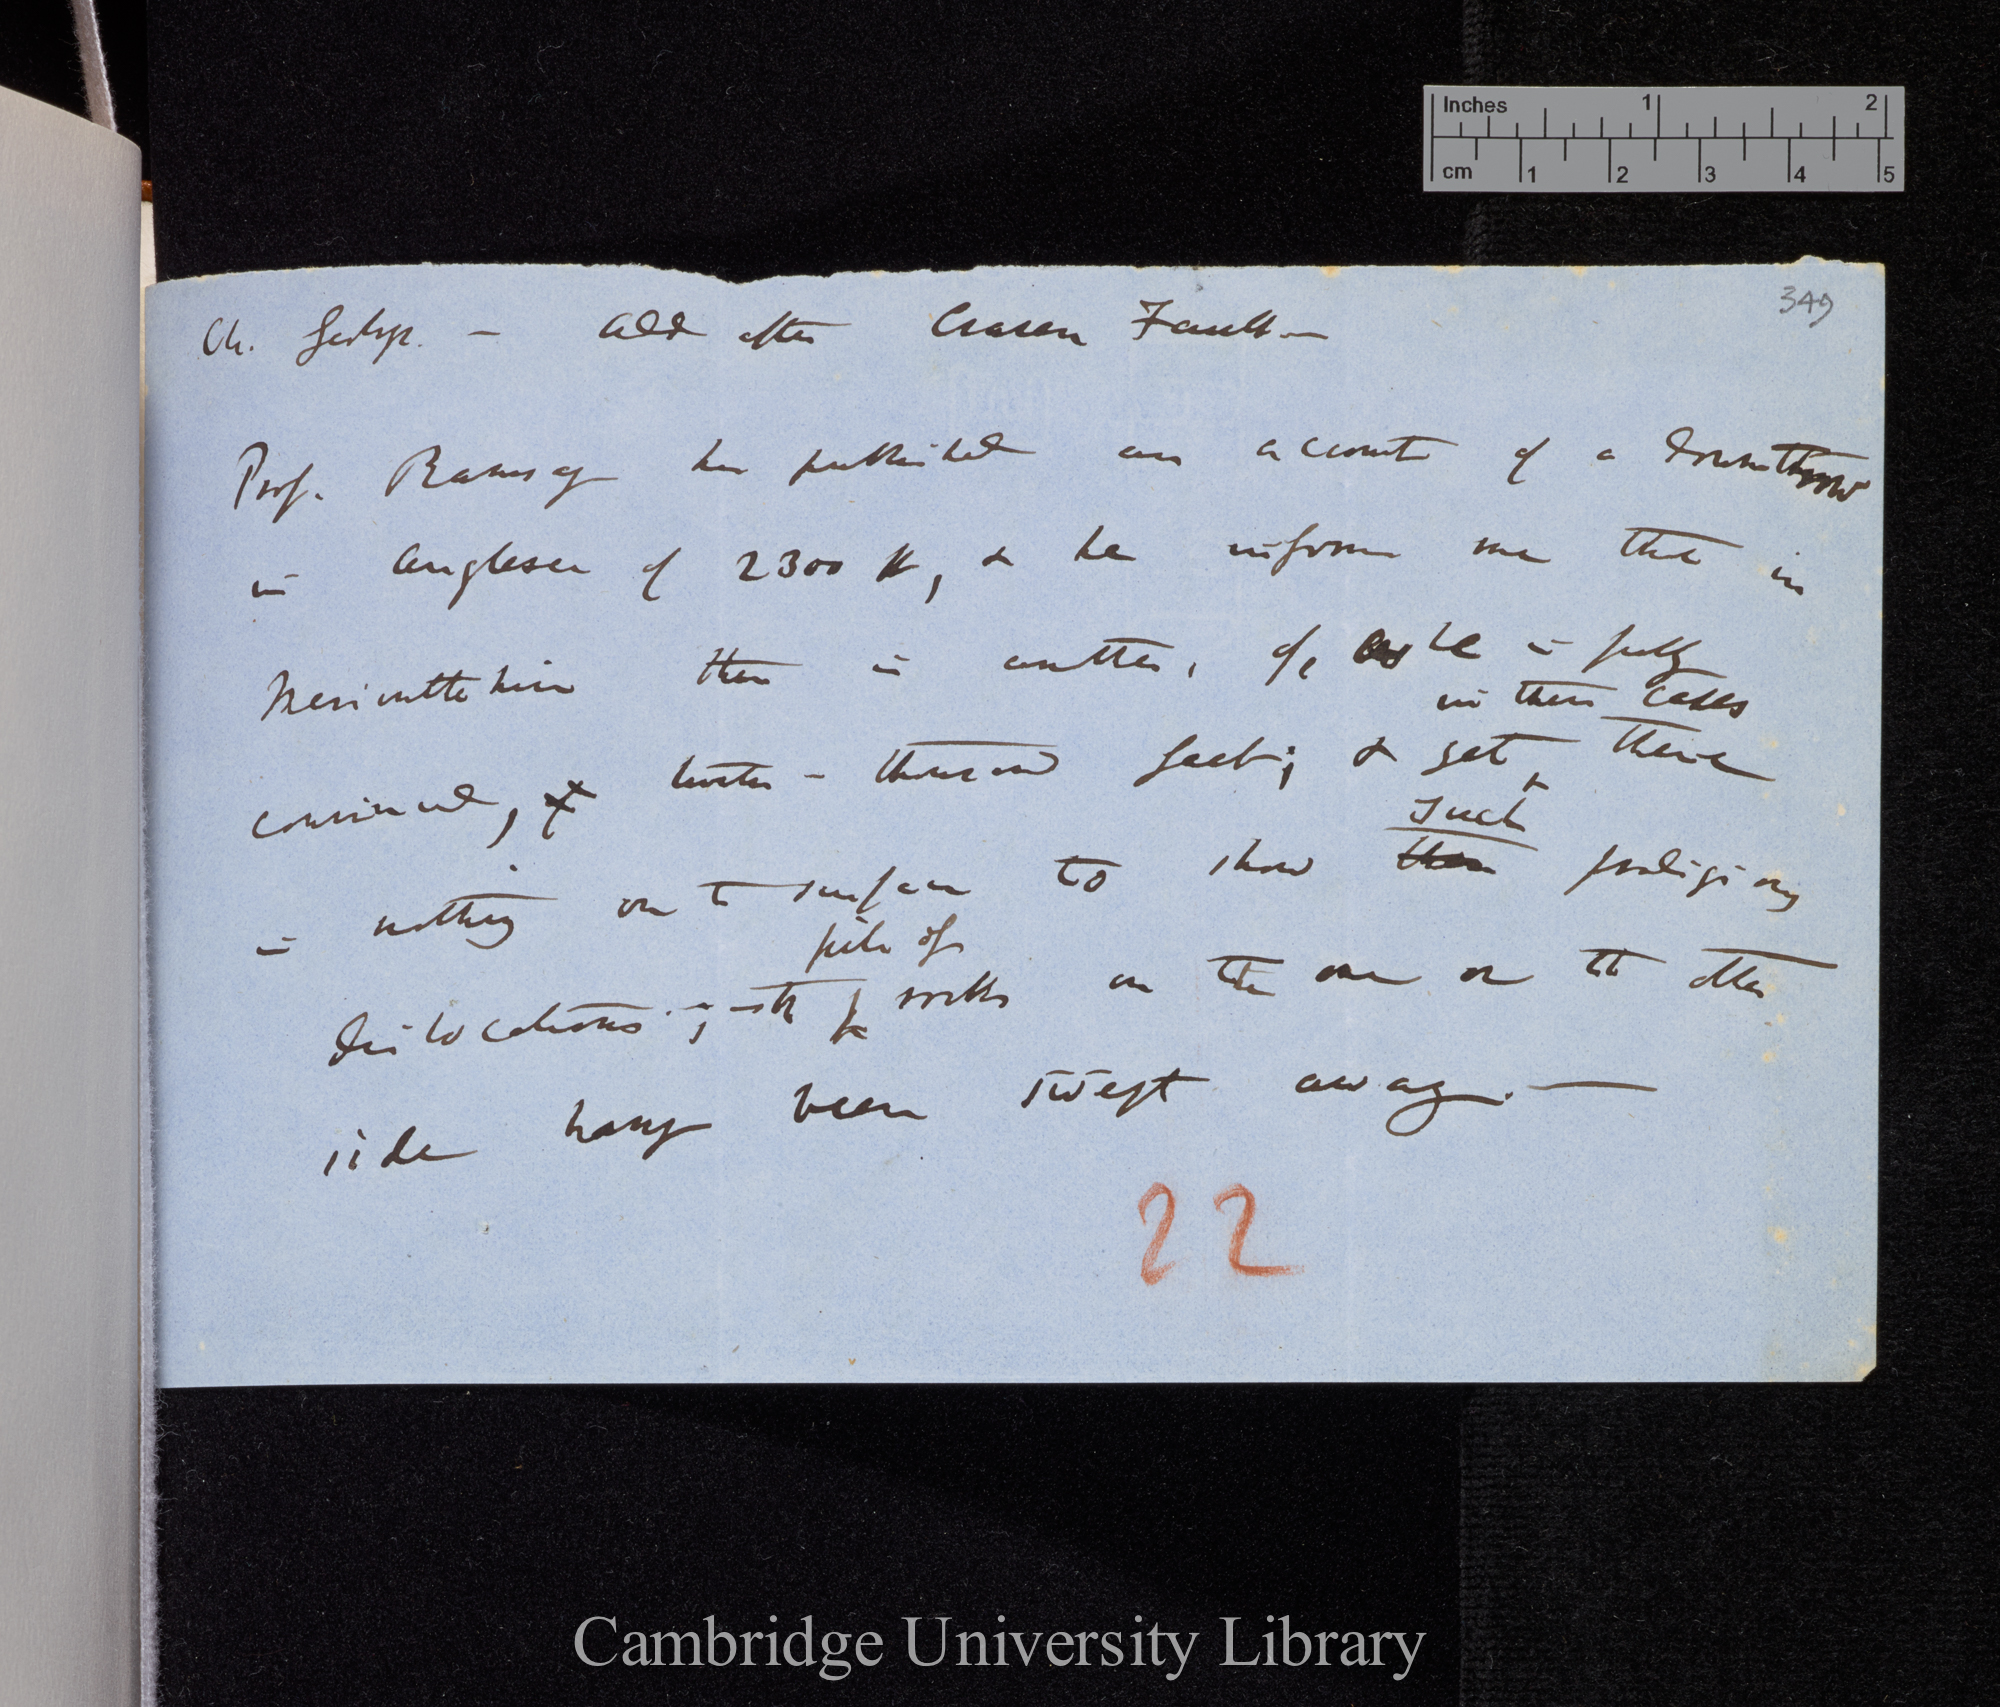 Inches 1 2
cm 1 2 3 4 5
349
Ch. Geolog. — Add after Craven Fault —
Prof. Ramsay has published an account of a downthrow
in Anglesea of 2300 ft, & he informs me that in
Merionethshire there is another, of, as he is fully
in these cases
convinced, twelve-thousand feet; & yet there
such
is nothing on the surface to show these prodigious
pile of
dislocations; the rocks on the one or the other
side having been swept away. —
22
Cambridge University Library